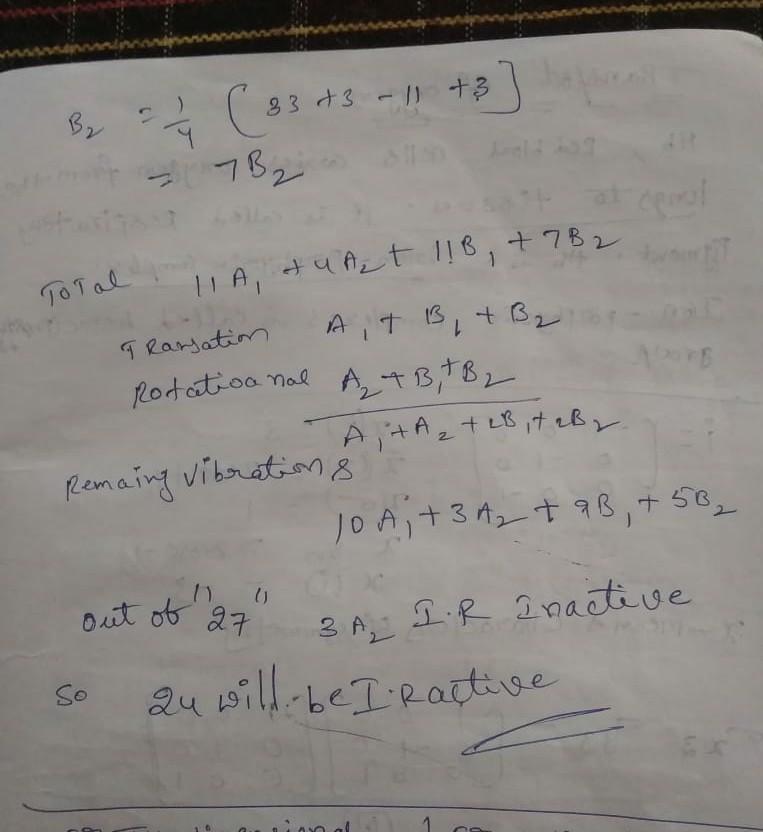 B₂ = 1/4 [33 + 3 - 11 + 3]
= 7B₂
Total 11A₁ + 4A₂ + 11B₁ + 7B₂
TRansation A₁ + B₁ + B₂
Rotatioanal A₂ + B₁ + B₂
A₁ + A₂ + 2B₁ + 2B₂
Remaing vibrations
10A₁ + 3A₂ + 9B₁ + 5B₂
out of "27" 3A₂ I.R Inactive
So 24 will be I.Ractive